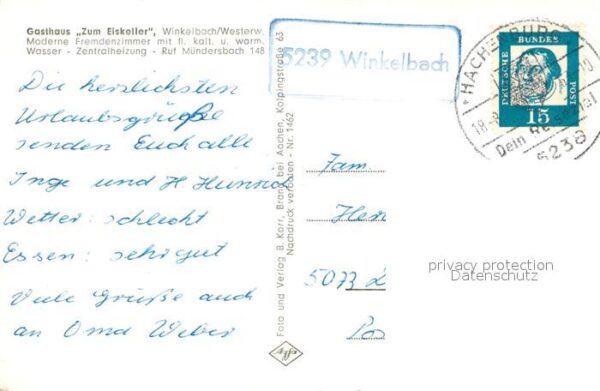 Gasthaus „Zum Eiskeller", Winkelbach/Westerw.
Moderne Fremdenzimmer mit fl. kalt. u. warm.
Wasser - Zentralheizung - Ruf Mündersbach 148
Die herzlichsten
Urlaubsgrüße
senden Euch alle
Inge und H Heinrich
Wetter: schlecht
Essen: sehr gut
Viele Grüße auch
an Oma Weber
Foto und Verlag B. Korr, Brand bei Aachen, Kolpingstraße 63
Nachdruck verboten - Nr. 1462
Agfa
5239 Winkelbach
DEUTSCHE
BUNDES
POST
15
HACHENBUR
18.-8.
Dein Reiseziel
5238
Fam.
Herr
5073
privacy protection
Datenschutz